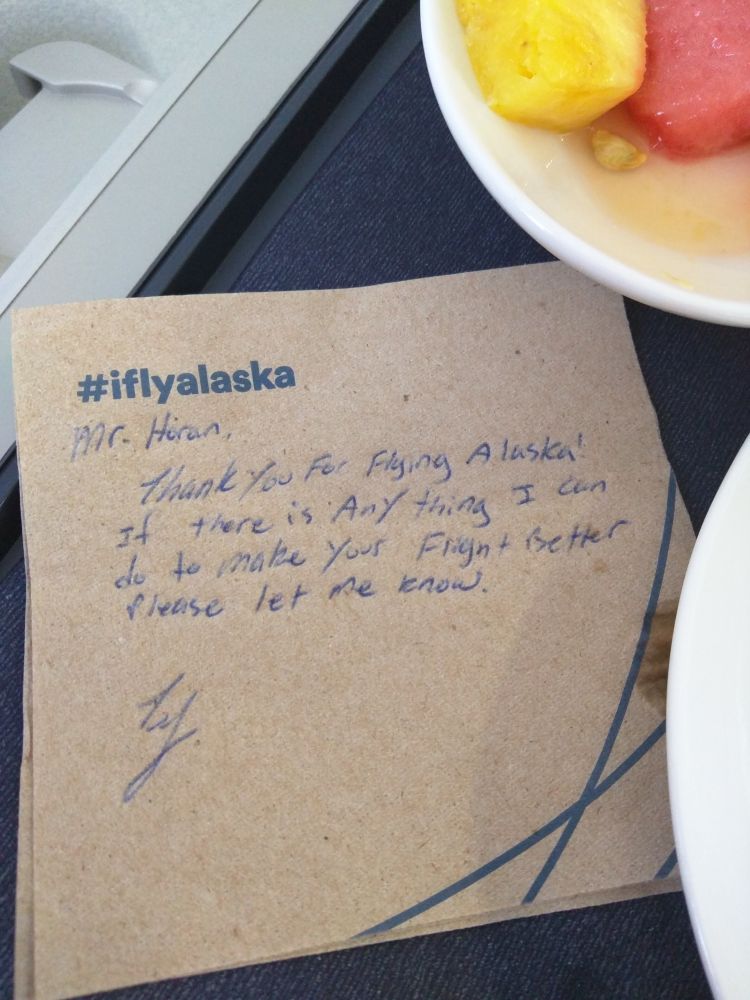 #iflyalaska
Mr. Horan,
Thank You For Flying Alaska!
If there is Any thing I can
do to make Your Flight Better
Please let me know.